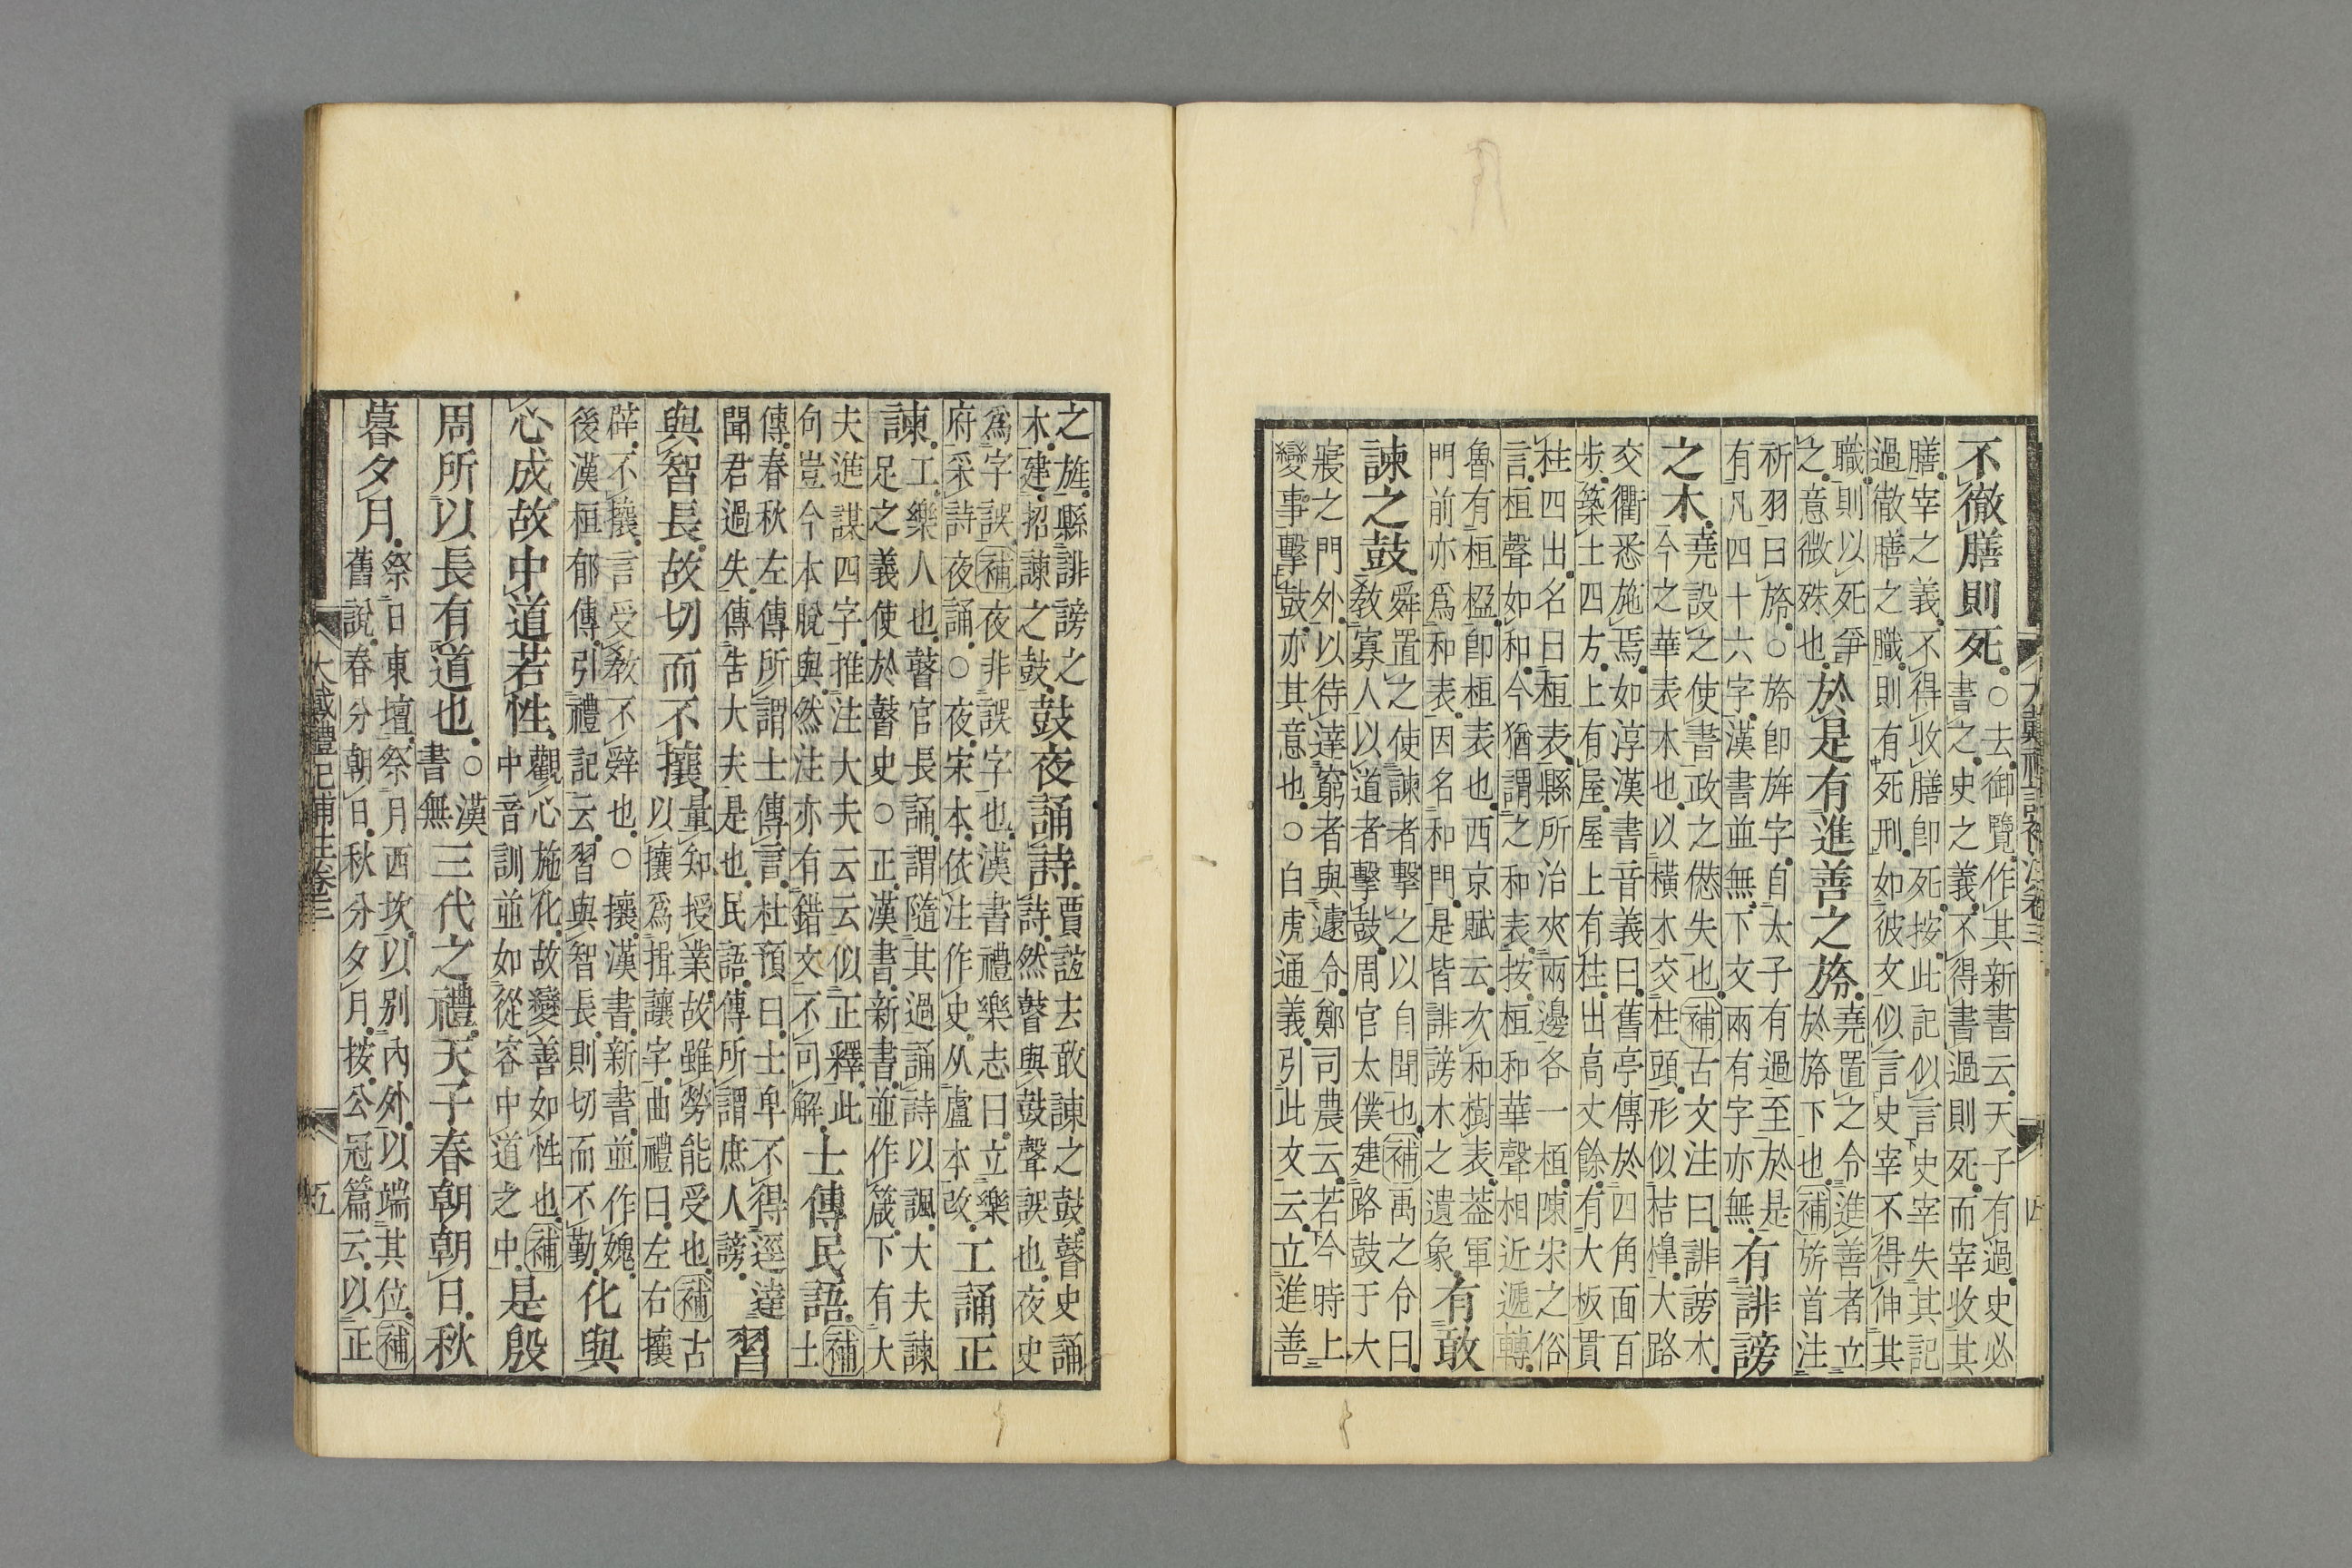 不徹膳則死。○去御覽作其新書云天子有過史必
書之史之義不得書過則死而宰收其
膳宰之義不得收膳卽死按此記似言史宰失其記
過徹膳之職則有死刑如彼文似言史宰不得伸其
職則以死爭
之意微殊也於是有進善之旍堯置之令進善者立
於旍下也補旂首注
祈羽曰旍○旍卽旌字自太子有過至於是
有凡四十六字漢書並無下文兩有字亦無有誹謗
之木堯設之使書政之愆失也補古文注曰誹謗木
今之華表木也以橫木交柱頭形似桔橰大路
交衢悉施焉如淳漢書音義曰舊亭傳於四角面百
步築土四方上有屋屋上有柱出高丈餘有大板貫
柱四出名曰桓表縣所治夾兩邊各一桓陳宋之俗
言桓聲如和今猶謂之和表按桓和華聲相近遞轉
魯有桓楹卽桓表也西京賦云次和樹表葢軍
門前亦爲和表因名和門是皆誹謗木之遺象有敢
諫之鼓舜置之使諫者擊之以自聞也補禹之令曰
敎寡人以道者擊鼓周官太僕建路鼓于大
寢之門外以待達窮者與遽令鄭司農云若今時上
變事擊鼓亦其意也○白虎通義引此文云立進善
大戴禮記補注卷三
四
之旌縣誹謗之
木建招諫之鼓鼓夜誦詩賈誼去敢諫之鼓瞽史誦
詩然瞽與鼓聲誤也夜史
爲字誤補夜非誤字也漢書禮樂志曰立樂
府采詩夜誦○夜宋本依注作史从盧本改工誦正
諫工樂人也瞽官長誦謂隨其過誦詩以諷大夫諫
足之義使於瞽史○正漢書新書並作箴下有大
夫進謀四字推注大夫云云似正釋此
句豈今本脫與然注亦有錯文不可解士傳民語補
士
傳春秋左傳所謂士傳言杜預曰士卑不得逕達
聞君過失傳告大夫是也民語傳所謂庶人謗習
與智長故切而不攘量知授業故雖勞能受也補古
以攘爲揖讓字曲禮曰左右攘
辟不攘言受敎不辤也○攘漢書新書並作媿
後漢桓郁傳引禮記云習與智長則切而不勤化與
心成故中道若性觀心施化故變善如性也補
中音訓並如從容中道之中是殷
周所以長有道也○漢
書無三代之禮天子春朝朝日秋
暮夕月祭日東壇祭月西坎以别內外以端其位補
舊說春分朝日秋分夕月按公冠篇云以正
大戴禮記補注卷三
五